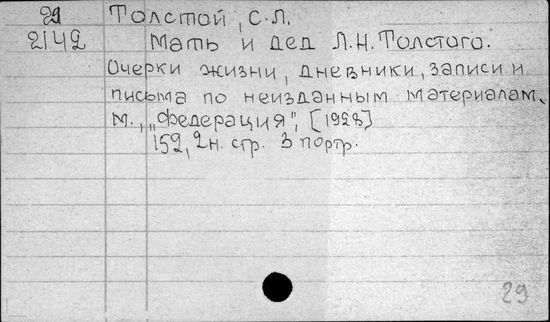 29 Толстой, С.Л.
2142 Мать и дед Л.Н. Толстого.
Очерки жизни, дневники, записи и
письма по неизданным материалам.
М., „Федерация", [1928]
152, 2 н. стр. 3 портр.
29